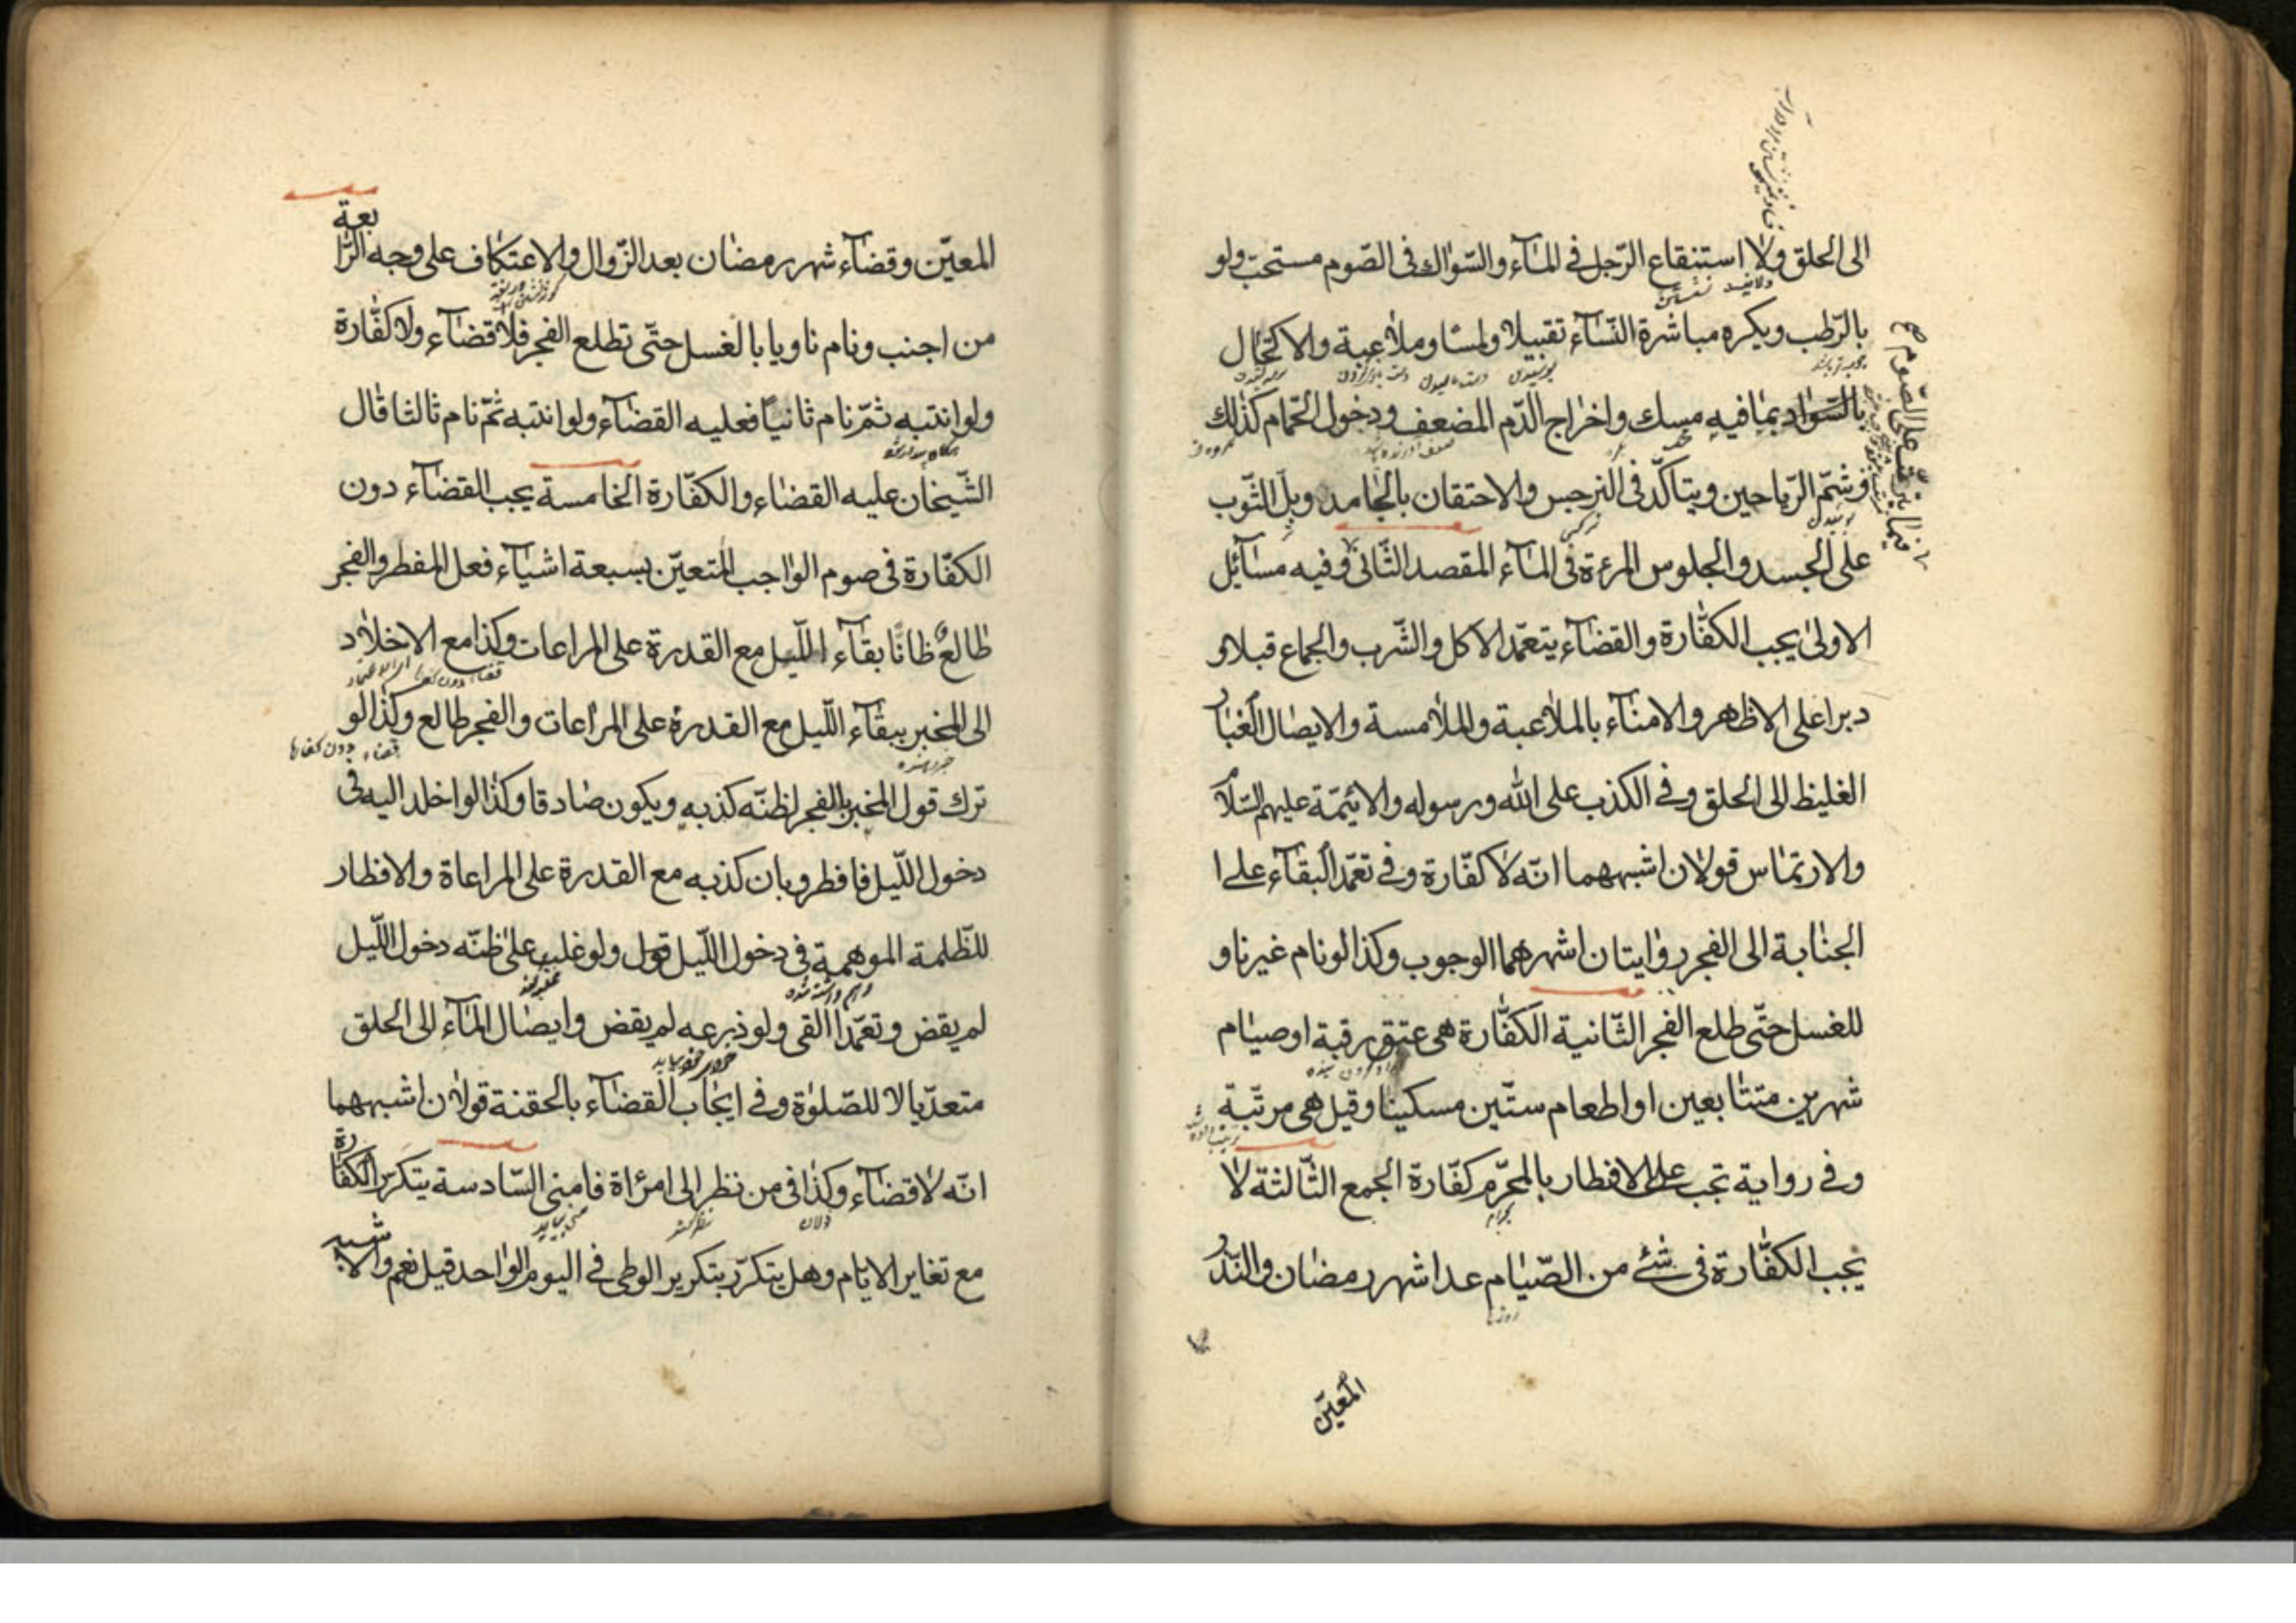 الى الحلق ولا استنقاع الرّجل في المآء والسّواك فى الصّوم مستحبّ ولو
بالرّطب ويكره مباشرة النّسآء تقبيلا ولمسًا وملاعبة والاكتحال
بالسّواد بما فيه مسك واخراج الدّم المضعف ودخول الحمّام كذلك
وشمّ الرّياحين ويتاكّد فى النرجس والاحتقان بالجامد وبل الثّوب
على الجسد والجلوس المرءة فى المآء المقصد الثّانى وفيه مسآئل
الاولىٰ يجب الكفّارة والقضآء بتعمّد الاكل والشّرب والجماع قبلا و
دبرا على الاظهر والامنآء بالملاعبة والملامسة والايصال الغبار
الغليظ الى الحلق وفى الكذب على الله ورسوله والائيمّة عليهم السّلام
والارتماس قولان اشبههما انّه لا كفّارة وفى تعمّد البقآء على ا
الجنابة الى الفجر روايتان اشهرهما الوجوب وكذا لو نام غير ناو
للغسل حتّى طلع الفجر الثّانية الكفّارة هى عتق رقبة او صيام
شهرين متتابعين او اطعام ستّين مسكينا وقيل هى مرتّبة
وفى رواية تجب على الافطار بالمحرّم كفّارة الجمع الثّالثة لا
يجب الكفّارة فى شئ من الصّيام عدا شهر رمضان والنّذر
المعيّن
المعيّن وقضآء شهر رمضان بعد الزّوال والاعتكاف على وجه الرّابعة
من اجنب ونام ناويا بالغسل حتّى تطلع الفجر فلا قضآء ولا كفّارة
ولو انتبه ثمّ نام ثانياً فعليه القضآء ولو انتبه ثمّ نام ثالثا قال
الشّيخان عليه القضاء والكفّارة الخامسة يجب القضآء دون
الكفّارة فى صوم الواجب المتعيّن بسبعة اشيآء فعل المفطر والفجر
طالعٌ ظانّا بقآء اللّيل مع القدرة على المراعات وكذا مع الاخلاد
الى المخبر ببقآء اللّيل مع القدرة على المراعات والفجر طالع وكذا لو
ترك قول المخبر بالفجر لظنّه كذبه ويكون صادقا وكذا لو اخلد اليه فى
دخول اللّيل فافطر وبان كذبه مع القدرة على المراعاة والافطار
للظّلمة الموهمة فى دخول اللّيل قول ولو غلب على ظنّه دخول اللّيل
لم يقض وتعمّد القى ولو ذرعه لم يقض وايصال المآء الى الحلق
متعدّيا لا للصّلوٰة وفى ايجاب القضآء بالحقنة قولان اشبههما
انّه لا قضآء وكذا فى من نظر الى امرأة فامنى السّادسة يتكرّر الكفّارة
مع تغاير الايّام وهل يتكرّر بتكرير الوطى فى اليوم الواحد قيل نعم والاشبه